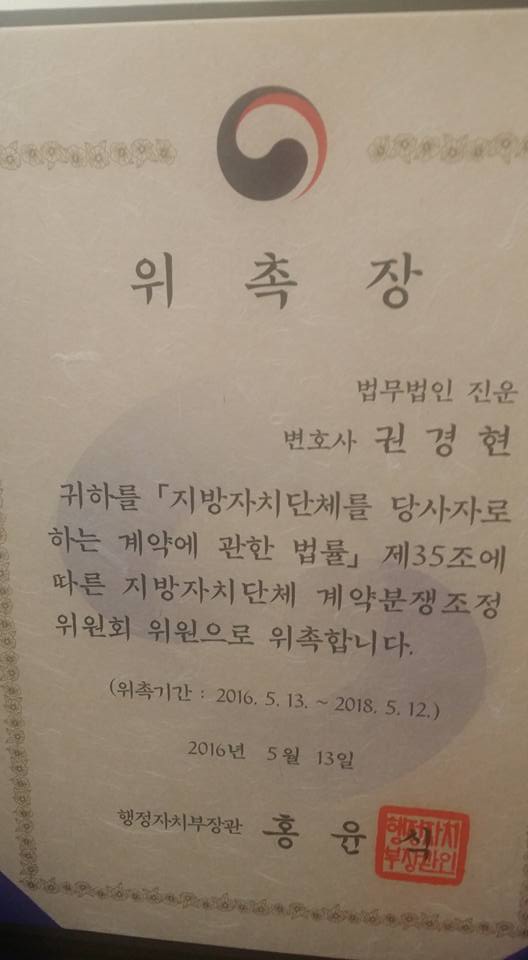 위 촉 장
법무법인 진운
변호사 권 경 현
귀하를 「지방자치단체를 당사자로
하는 계약에 관한 법률」 제35조에
따른 지방자치단체 계약분쟁조정
위원회 위원으로 위촉합니다.
(위촉기간 : 2016. 5. 13. ~ 2018. 5. 12.)
2016년 5월 13일
행정자치부장관 홍 윤 식
행정자치
부장관인